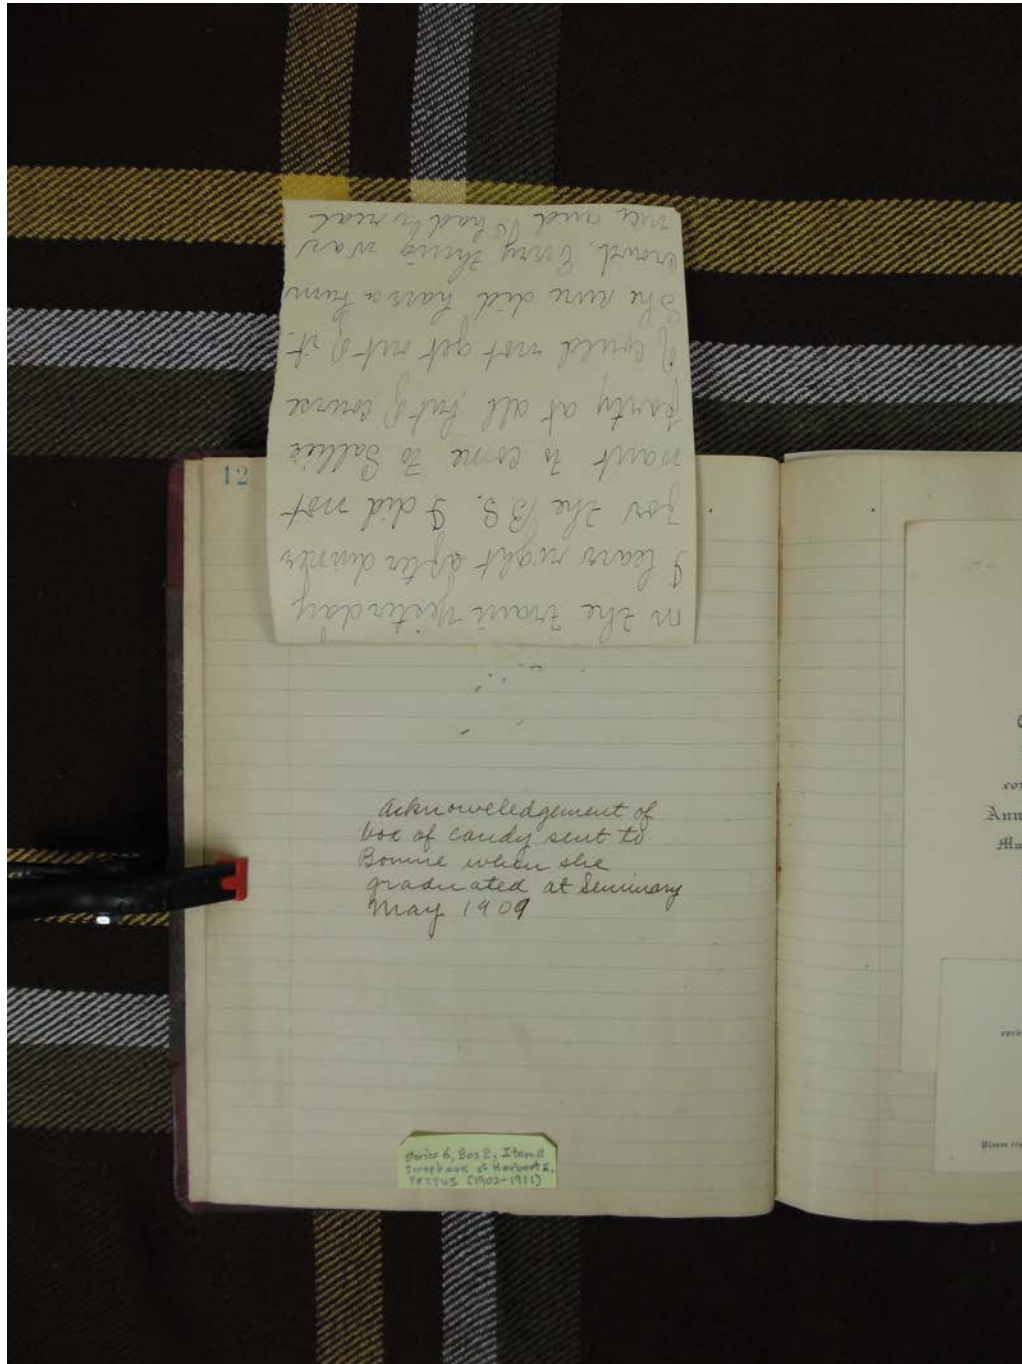 on the train yesterday
I leave right after dinner
for the B.S. I did not
want to come to Sallie's
party at all, but of course
I could not get out of it.
She sure did have a bum
crowd. Every thing was
nice and had real
12
Acknoweledgement of
box of candy sent to
Bonnie when she
graduated at Seminary
May 1909
Series 6, Box 2, Item 2
Scrapbook of Herbert E.
(1902-1911)
Ann
Please